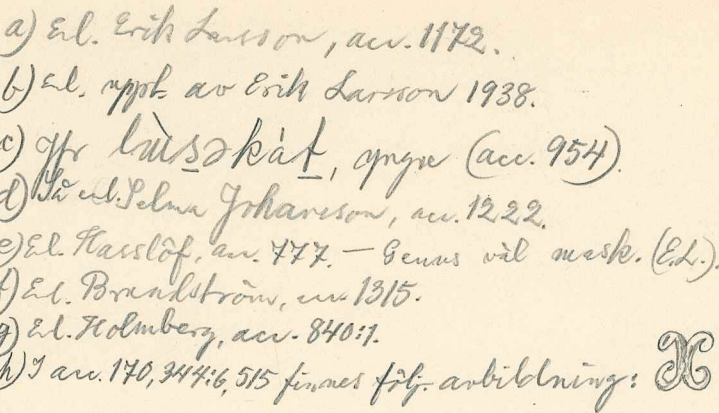 a) Enl. Erik Larsson, acc. 1172.
b) Enl. uppt. av Erik Larsson 1938.
c) Jfr lùsəkàt, yngre (acc. 954).
d) Så enl. Selma Johansson, acc. 1222.
e) Enl. Hasslöf, acc. 777. – Genus väl mask. (E.L.).
f) Enl. Brandström, acc. 1315.
g) Enl. Holmberg, acc. 840:1.
h) I acc. 170, 344:6, 515 finnes följ. avbildning: